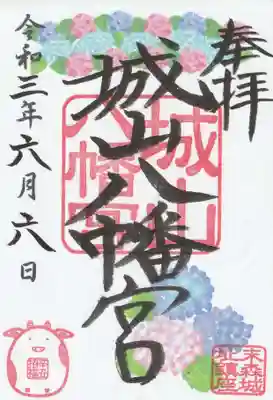 奉拝
城山八幡宮
城山
八幡宮
令和三年六月六日
末森城
址鎮座